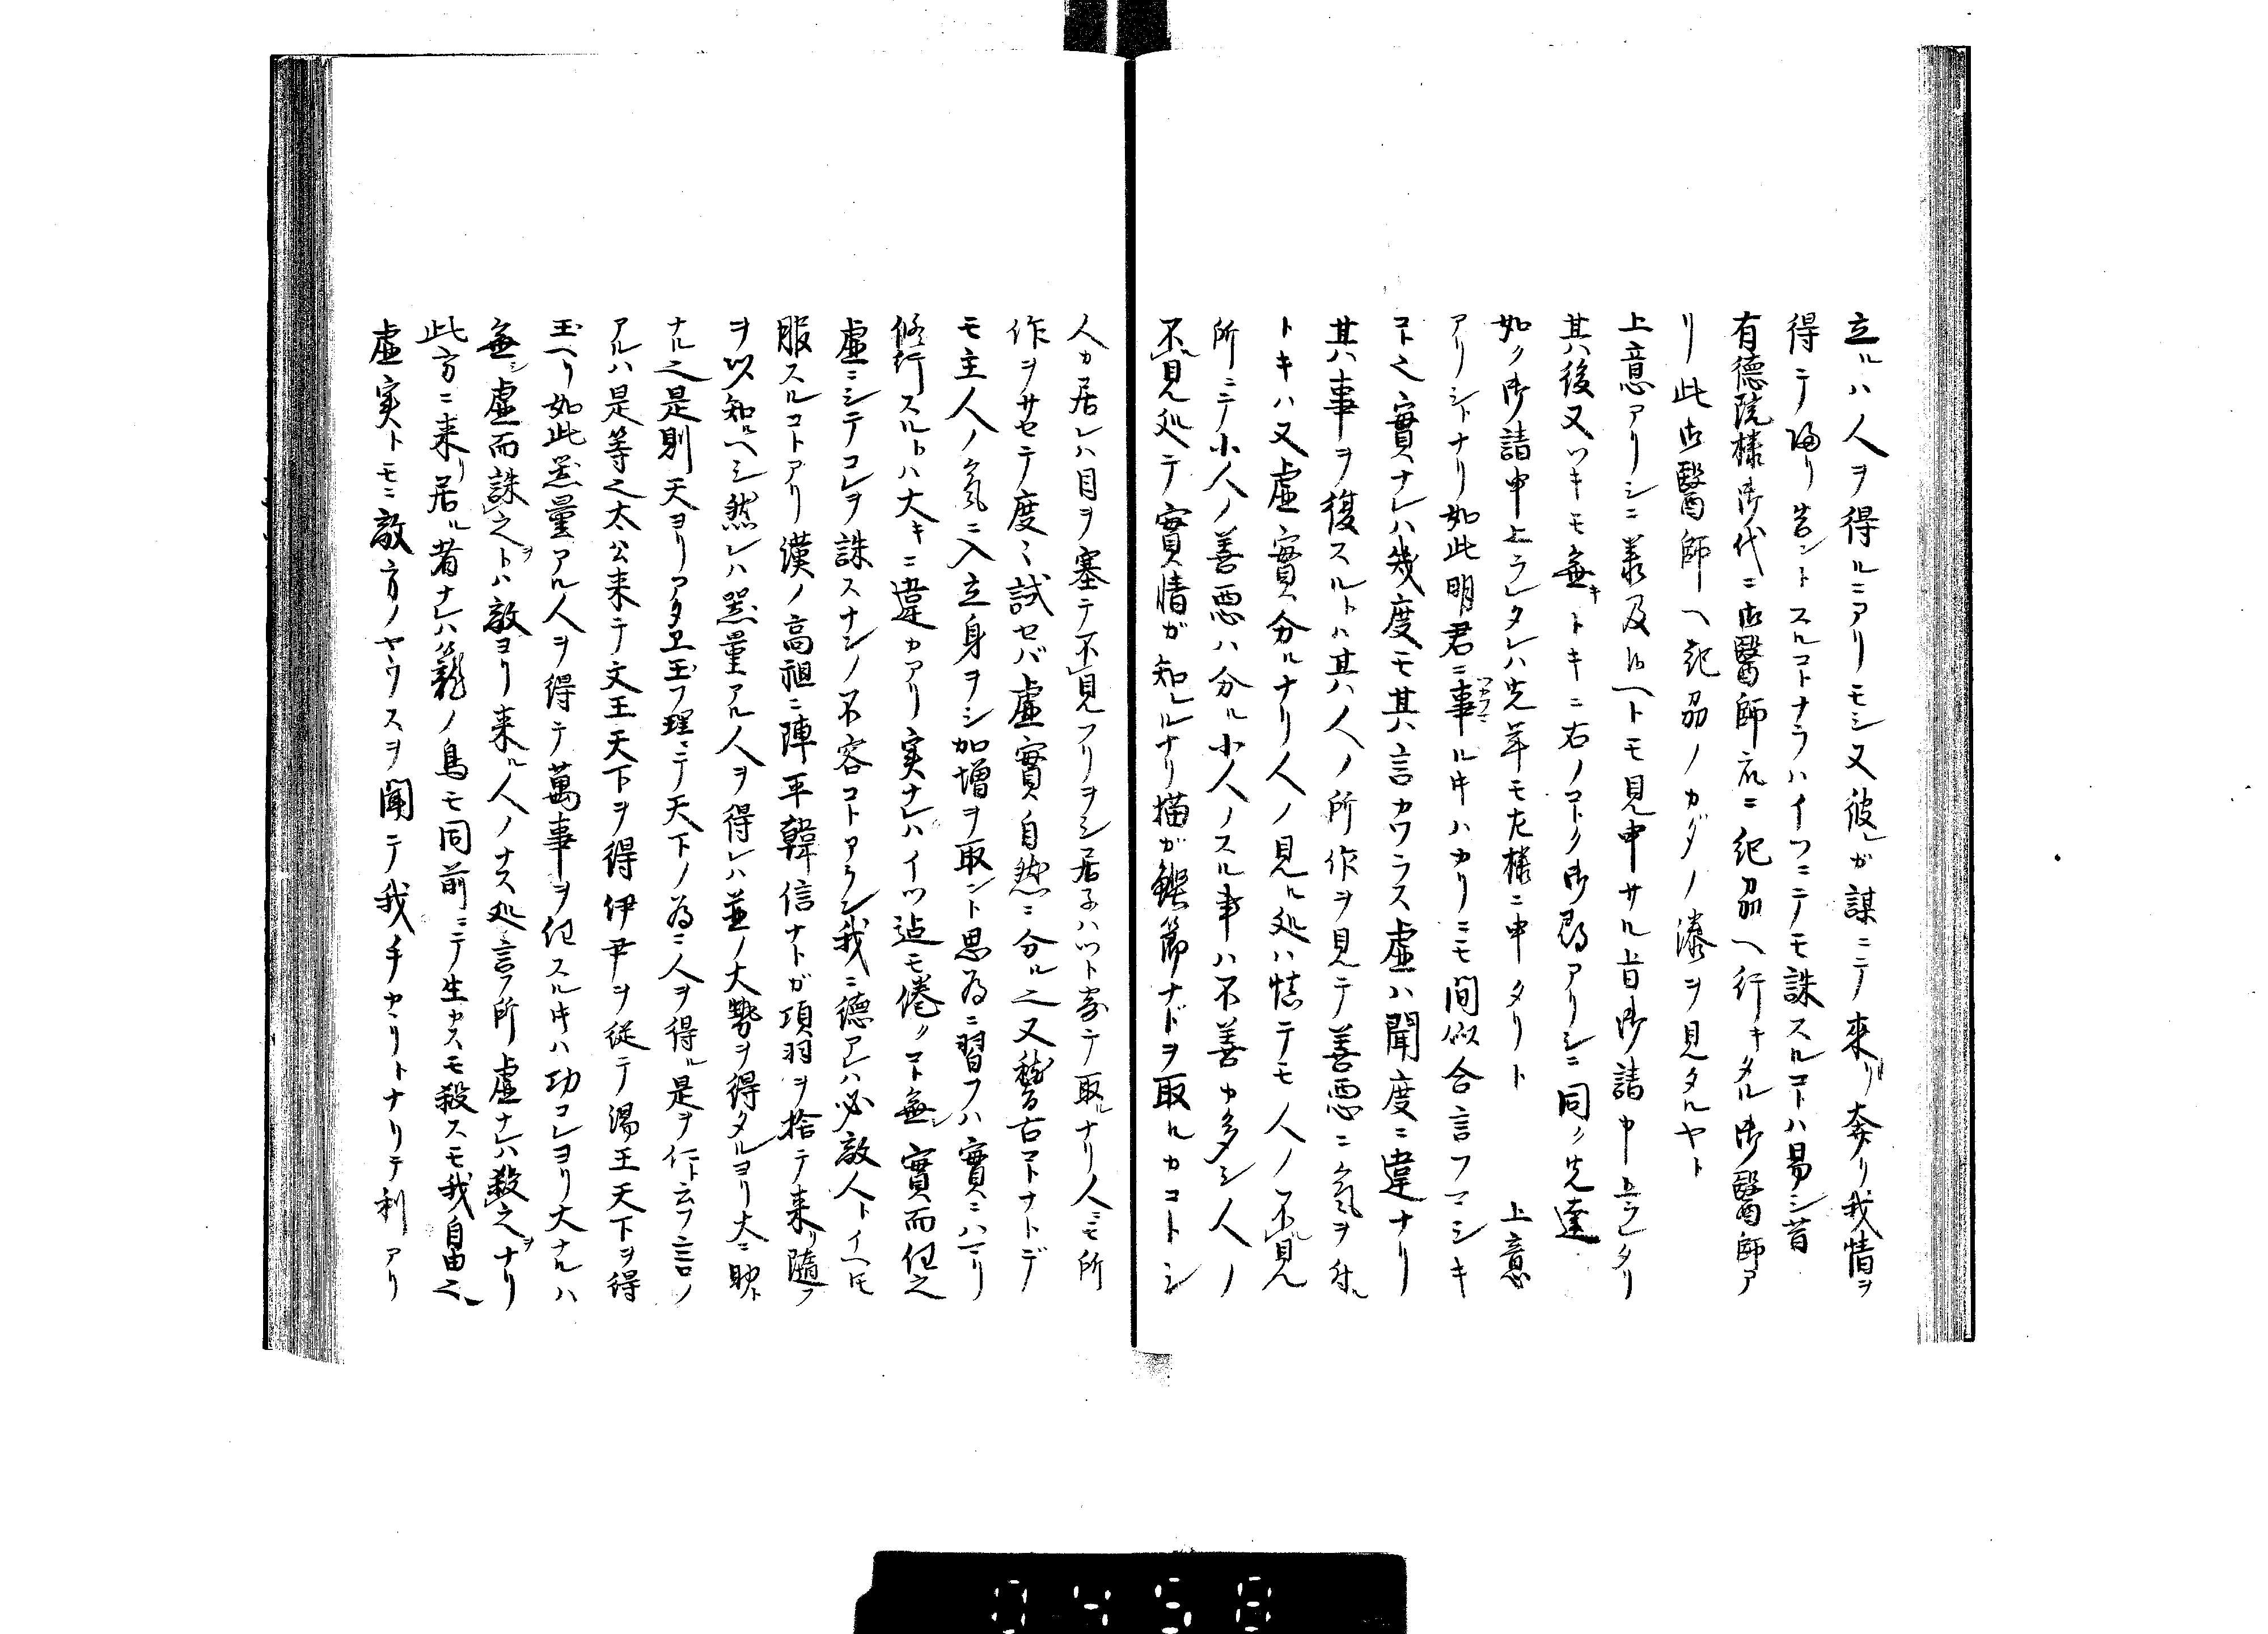 立ルハ人ヲ得ルニアリモシ又彼レガ謀ニテ來リ奔リ我情ヲ
得テ帰リ告ントスルコトナラハイツニテモ誅スルコトハ易シ昔
有德院樣御代ニ御醫師衆ニ紀刕ヘ行キタル御醫師ア
リ此御醫師ヘ紀刕ノカダノ湊ヲ見タルヤト
上意アリシニ兼及候ヘトモ見申サル旨御請申上ラレタリ
其後又ツキモ無キトキニ右ノコトク御尋アリシニ同ク先達
如ク御請申上ラレタレハ先年モ左樣ニ申タリト 上意
アリシトナリ如此明君ニ事ツカフルニハカリニモ間似合言フマシキ
コト也實ナレハ幾度モ其言カワラス虛ハ聞度ニ違ナリ
其事ヲ復スルトハ其人ノ所作ヲ見テ善悪ニ氣ヲ付ル
トキハ又虛實分ルナリ人ノ見ル処ハ慎テモ人ノ不見
所ニテ小人ノ善悪ハ分ル小人ノスル事ハ不善カ多シ人ノ
不見処テ實情ガ知ルルナリ猫ガ鰹節ナドヲ取ルカコトシ
人カ居レハ目ヲ塞テ不見フリヲシ居子ハツト寄テ取ルナリ人ニモ所
作ヲサセテ度々試セバ虛實自然ニ分ル也又稽古コトナトデ
モ主人ノ氣ニ入立身ヲシ加增ヲ取ント思為ニ習フハ實ニハマリ
修行スルトハ大キニ違カアリ実ナレハイツ迠モ倦クコト無シ實而任之
虛ニシテコレヲ誅スナンノ不容コトアラン我ニ德アレハ必敵人トイヘ𪜈
服スルコトアリ漢ノ高祖ニ陳平韓信ナトガ項羽ヲ捨テ来リ隨フ
ヲ以知ヘシ然レハ器量アル人ヲ得レハ並ノ大勢ヲ得タルヨリ大ニ助ト
ナル也是則天ヨリアタヱ玉フ理ニテ天下ノ為ニ人ヲ得ル是ヲ仁ト云フ言ノ
アルハ是等也太公来テ文王天下ヲ得伊尹ヲ従テ湯王天下ヲ得
玉ヘリ如此器量アル人ヲ得テ萬事ヲ任スル𪜈ハ功コレヨリ大ナルハ
無シ虛而誅之ヲトハ敵ヨリ来ル人ノナス処言フ所虛ナレハ殺之ヲナリ
此方ニ来リ居ル者ナレハ籠ノ鳥モ同前ニテ生カスモ殺スモ我自由也
虛実トモニ敵方ノヤウスヲ聞テ我手カヽリトナリテ利アリ
0458